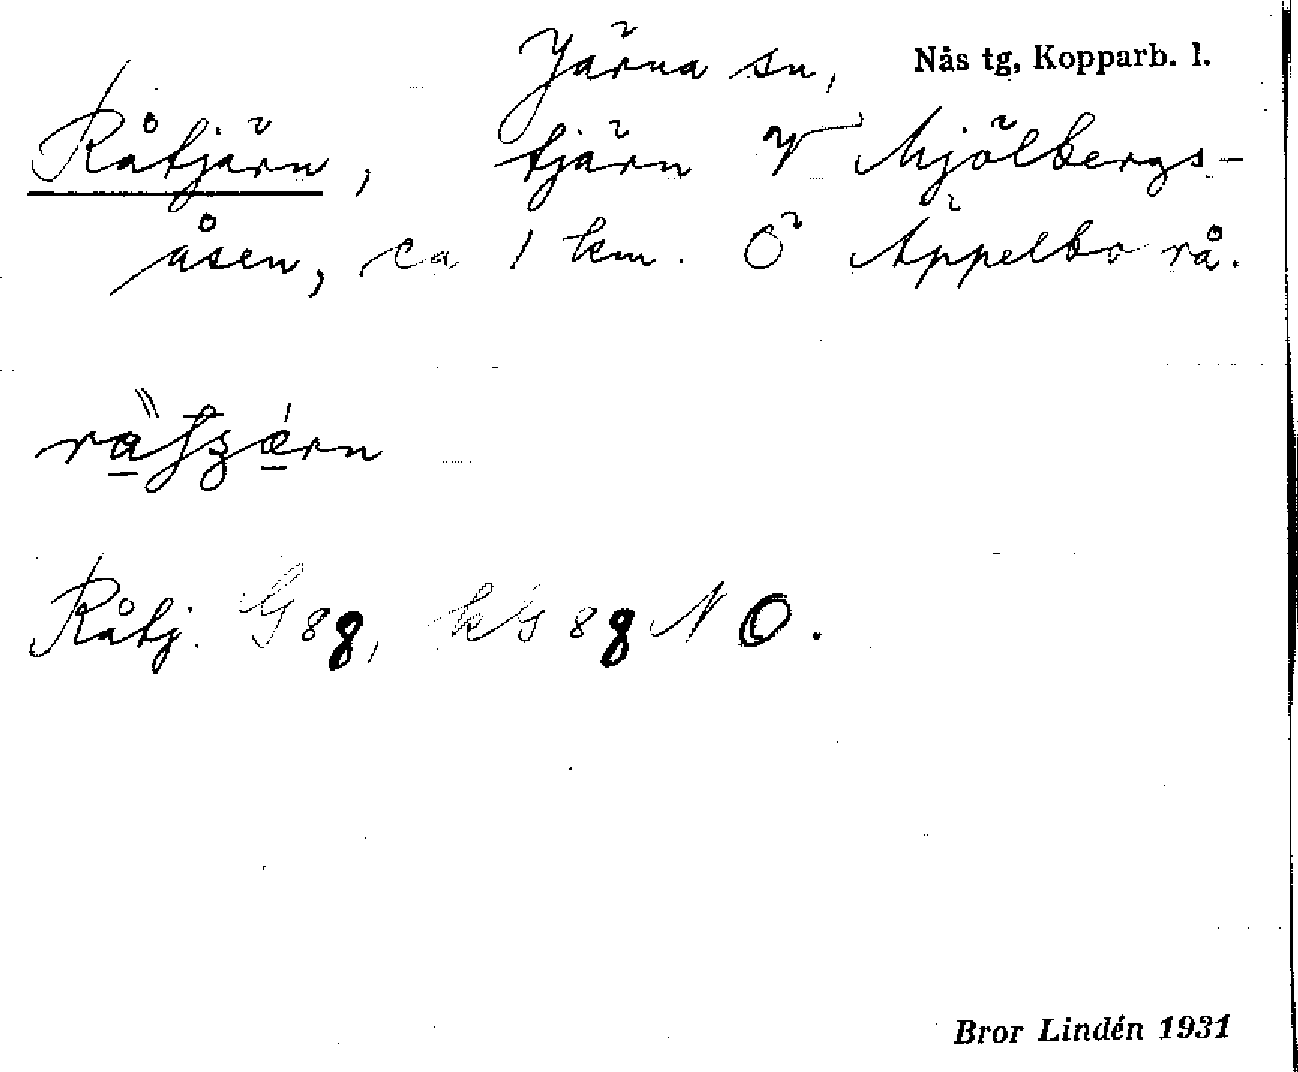 Järna sn, Nås tg, Kopparb. l.
Råtjärn, tjärn V Mjölbergs-
åsen, ca 1 km. Ö Äppelbo rå.
Råtj. G 8g, kG 8g NO.
Bror Lindén 1931